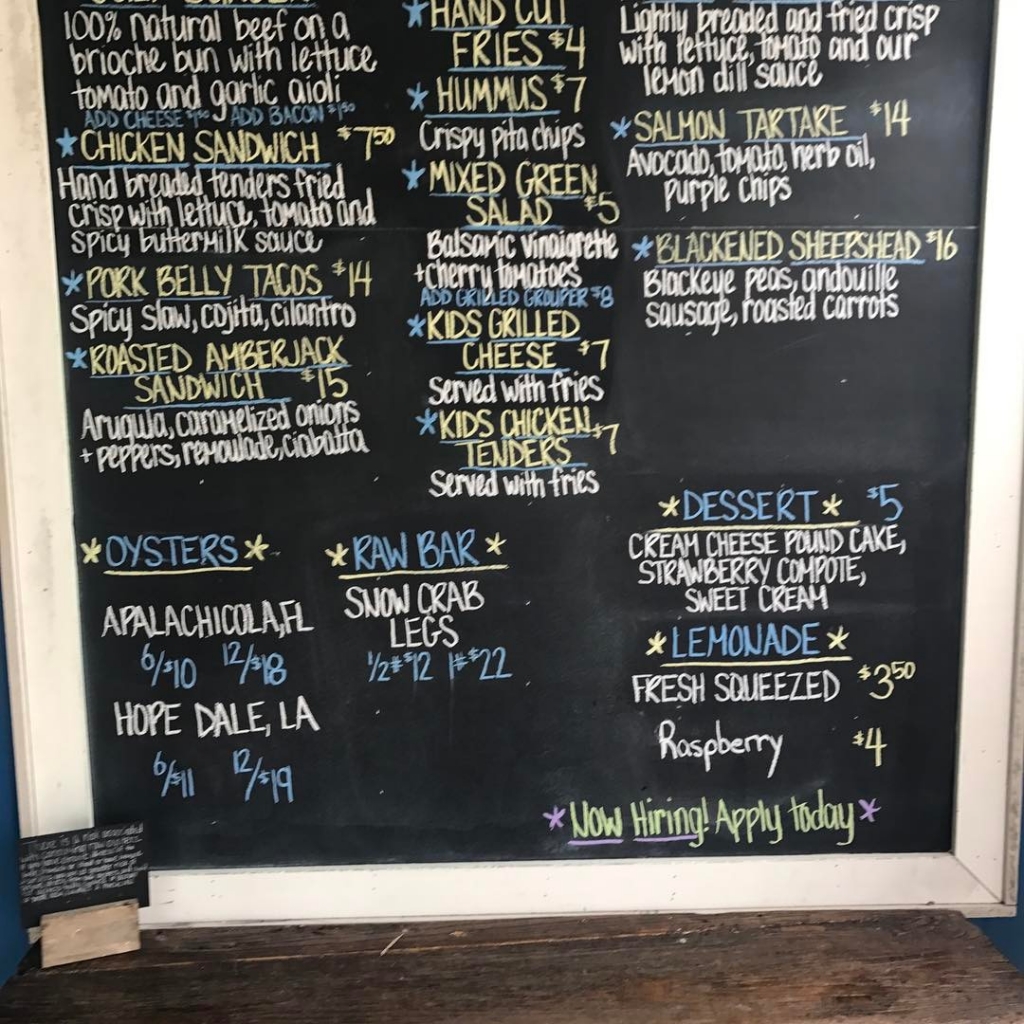 100% natural beef on a
brioche bun with lettuce
tomato and garlic aioli
ADD CHEESE ADD BACON $1.50
*CHICKEN SANDWICH $7.50
Hand breaded tenders fried
crisp with lettuce, tomato and
spicy buttermilk sauce
*PORK BELLY TACOS $14
Spicy slaw, cojita, cilantro
*ROASTED AMBERJACK
SANDWICH $15
Arugula, caramelized onions
+ peppers, remoulade, ciabatta
*HAND CUT
FRIES $4
*HUMMUS $7
Crispy pita chips
*MIXED GREEN
SALAD $5
Balsamic vinaigrette
+cherry tomatoes
ADD GRILLED GROUPER $8
*KIDS GRILLED
CHEESE $7
Served with fries
*KIDS CHICKEN
TENDERS $7
Served with fries
Lightly breaded and fried crisp
with lettuce, tomato and our
lemon dill sauce
*SALMON TARTARE $14
Avocado, tomato, herb oil,
purple chips
*BLACKENED SHEEPSHEAD $16
Blackeye peas, andouille
sausage, roasted carrots
*OYSTERS*
APALACHICOLA, FL
6/$10 12/$18
HOPE DALE, LA
6/$11 12/$19
*RAW BAR*
SNOW CRAB
LEGS
1/2# $12 1# $22
*DESSERT* $5
CREAM CHEESE POUND CAKE,
STRAWBERRY COMPOTE,
SWEET CREAM
*LEMONADE*
FRESH SQUEEZED $3.50
Raspberry $4
*Now Hiring! Apply today*